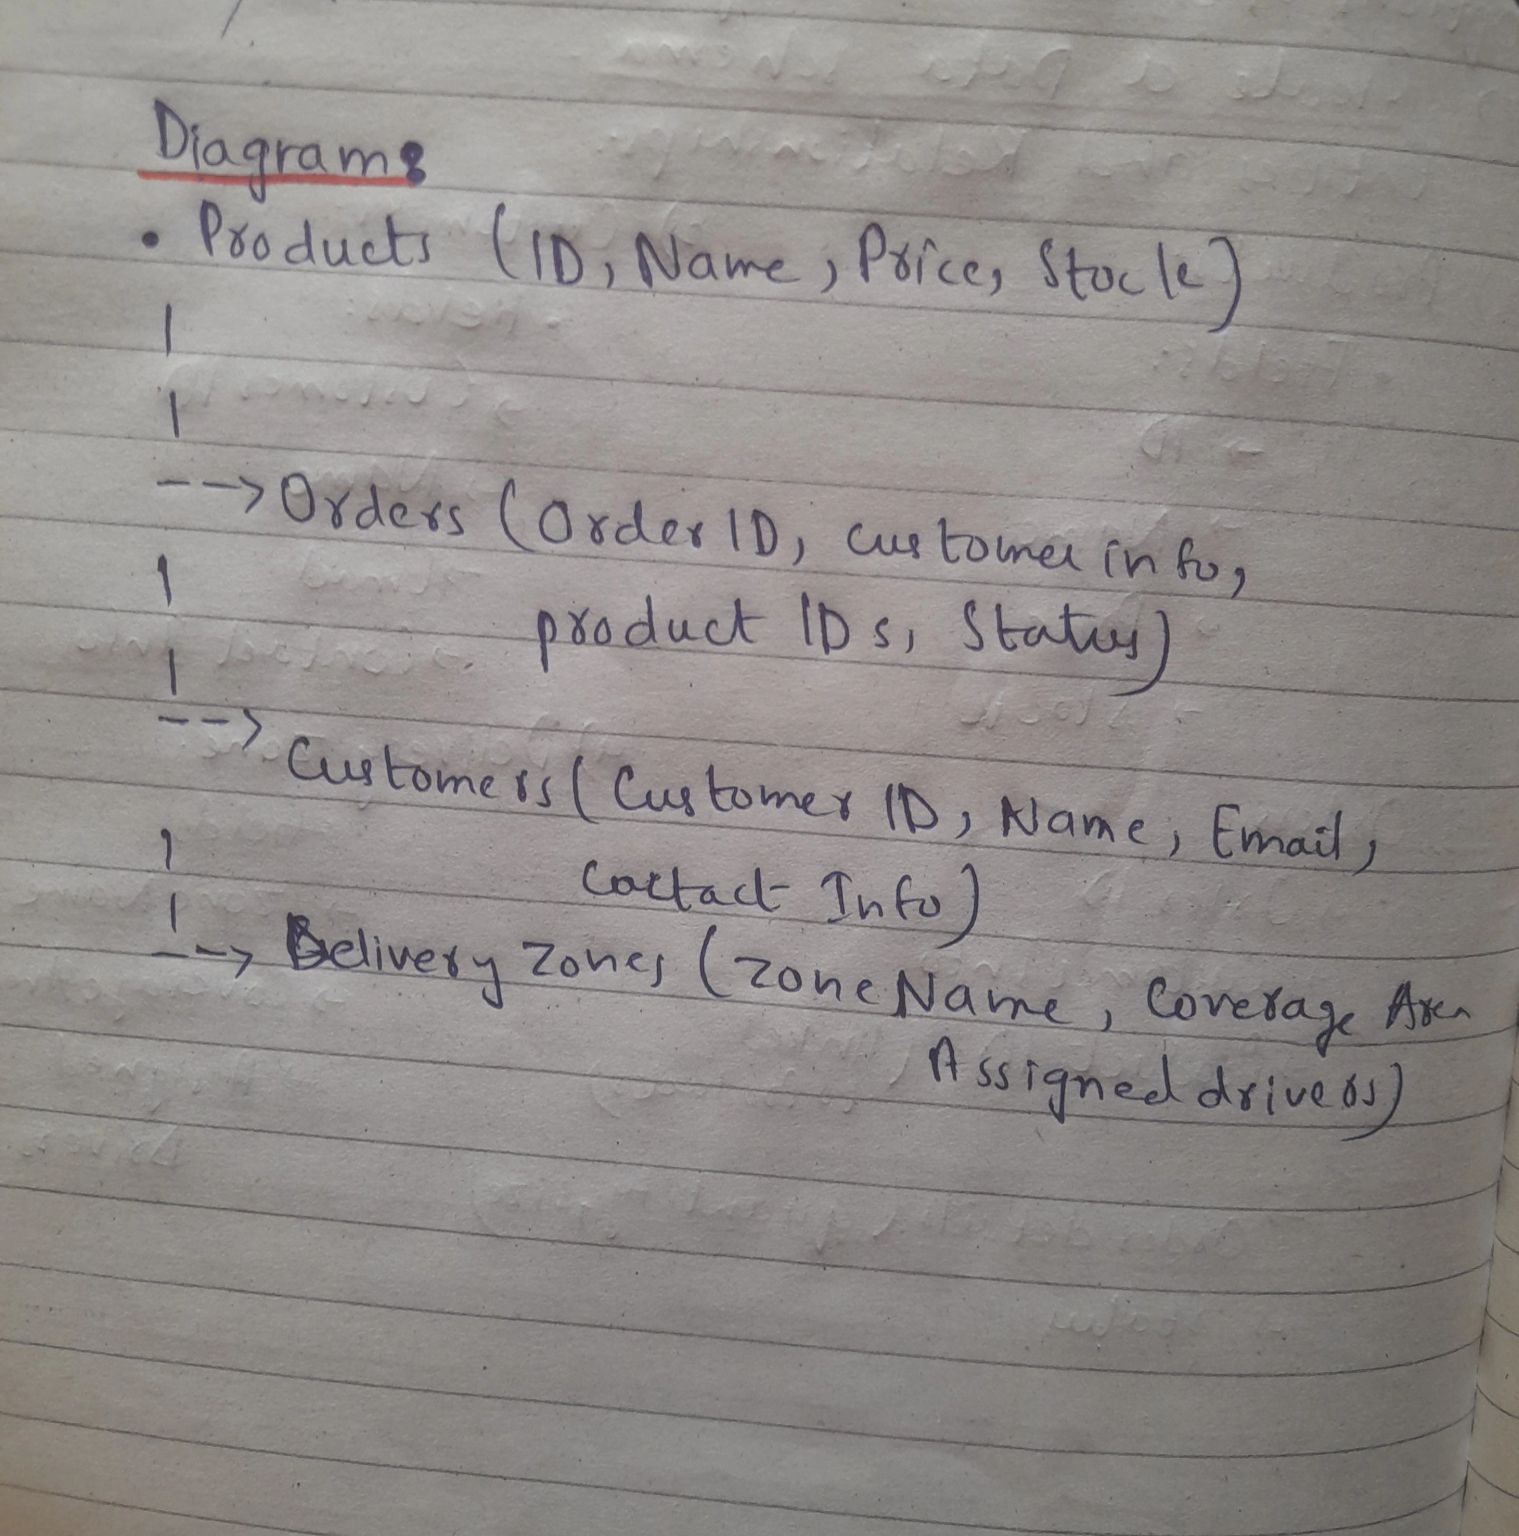 Diagram:
• Products (ID, Name, Price, Stock)
|
|
--> Orders (Order ID, customer info,
product IDs, Status)
|
|
-->
Customers (Customer ID, Name, Email,
Contact Info)
|
|
--> Delivery Zones (Zone Name, Coverage Area
Assigned drivers)